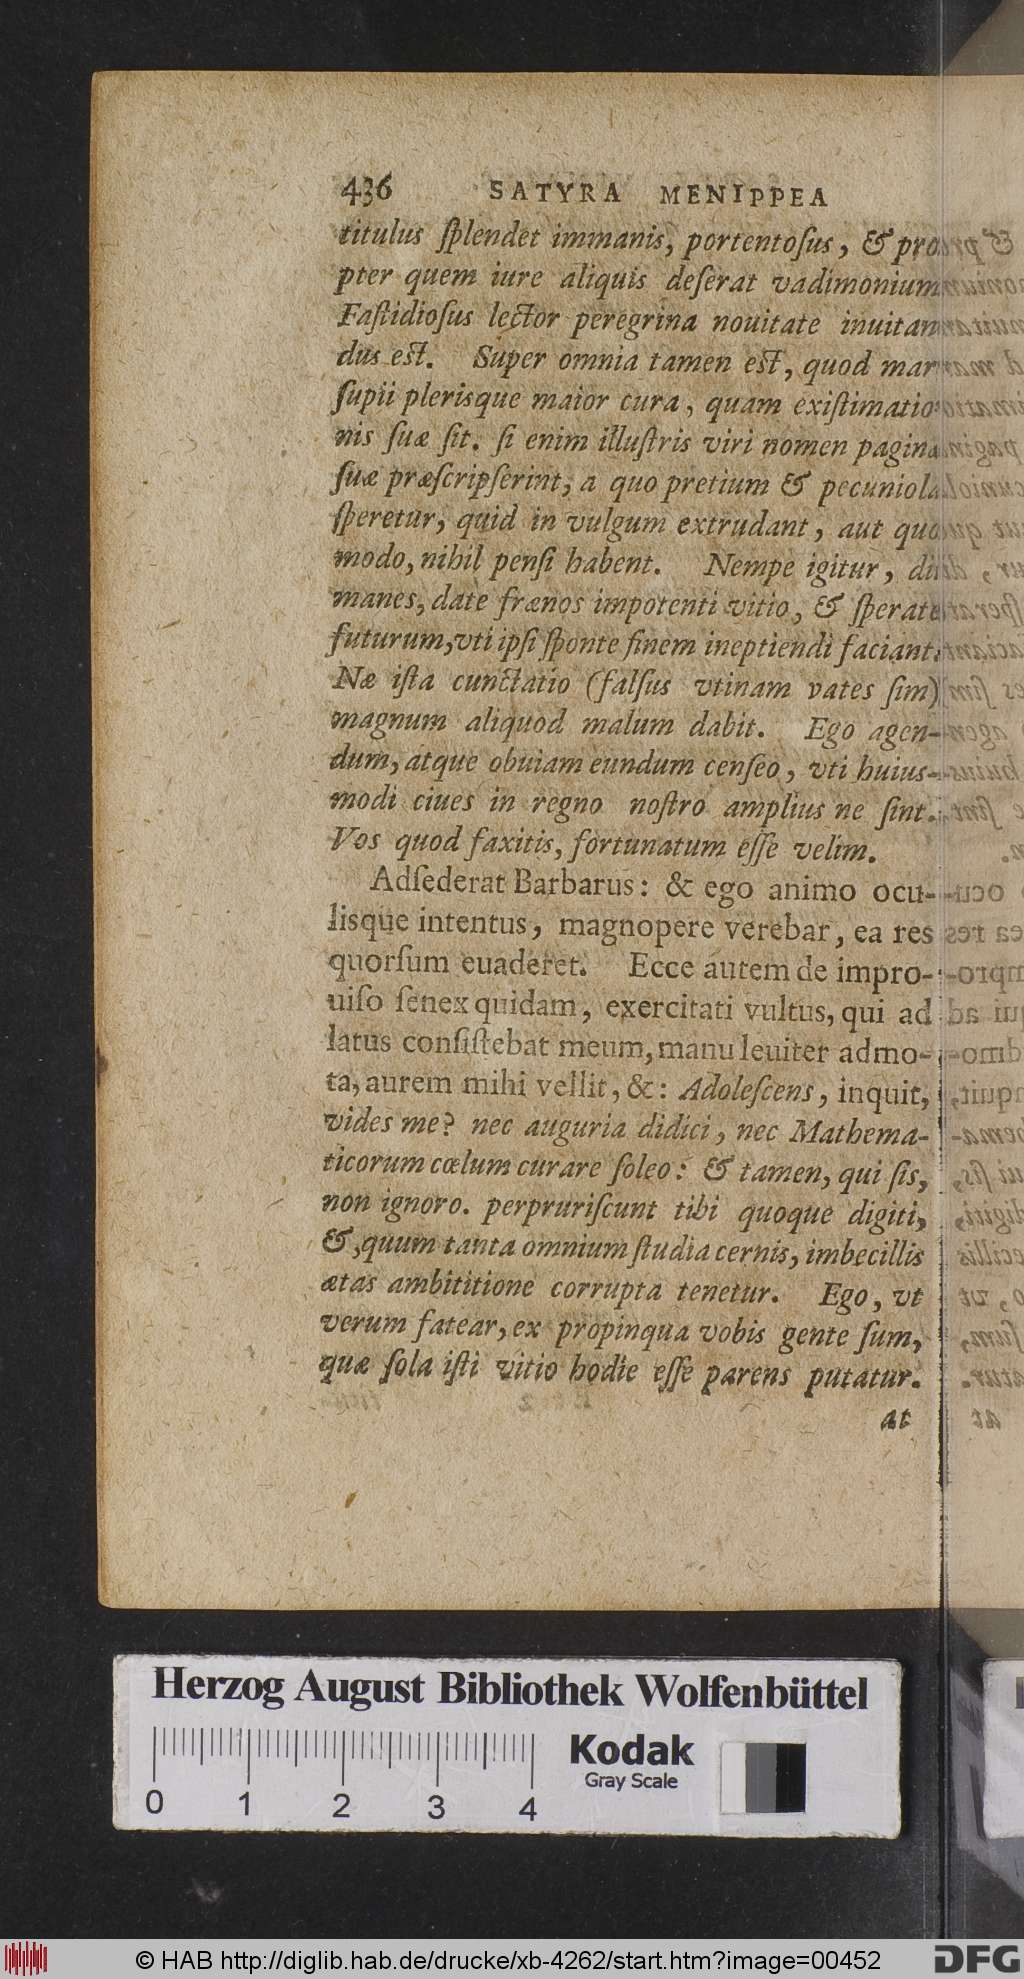 436 SATYRA MENIPPEA
titulus ſplendet immanis, portentoſus, & pro
pter quem iure aliquis deſerat vadimonium
Faſtidioſus lector peregrina nouitate inuitan
dus eſt. Super omnia tamen eſt, quod mar
ſupii plerisque maior cura, quam exiſtimatio
nis ſuæ ſit. ſi enim illuſtris viri nomen pagina
ſuæ præſcripſerint, a quo pretium & pecuniola
ſperetur, quid in vulgum extrudant, aut quo
modo, nihil penſi habent. Nempe igitur, dii
manes, date frænos impotenti vitio, & ſperate
futurum, vti ipſi ſponte finem ineptiendi faciant.
Næ iſta cunctatio (falſus vtinam vates ſim)
magnum aliquod malum dabit. Ego agen-
dum, atque obuiam eundum cenſeo, vti huius-
modi ciues in regno noſtro amplius ne ſint.
Vos quod faxitis, fortunatum eſſe velim.
Adſederat Barbarus: & ego animo ocu-
lisque intentus, magnopere verebar, ea res
quorſum euaderet. Ecce autem de impro-
uiſo ſenex quidam, exercitati vultus, qui ad
latus conſiſtebat meum, manu leuiter admo-
ta, aurem mihi vellit, &: Adoleſcens, inquit,
vides me? nec auguria didici, nec Mathema-
ticorum cœlum curare ſoleo: & tamen, qui ſis,
non ignoro. perpruriſcunt tibi quoque digiti,
&, quum tanta omnium ſtudia cernis, imbecillis
ætas ambititione corrupta tenetur. Ego, vt
verum fatear, ex propinqua vobis gente ſum,
quæ ſola iſti vitio hodie eſſe parens putatur.
at
Herzog August Bibliothek Wolfenbüttel
Kodak
Gray Scale
0 1 2 3 4
© HAB http://diglib.hab.de/drucke/xb-4262/start.htm?image=00452
DFG